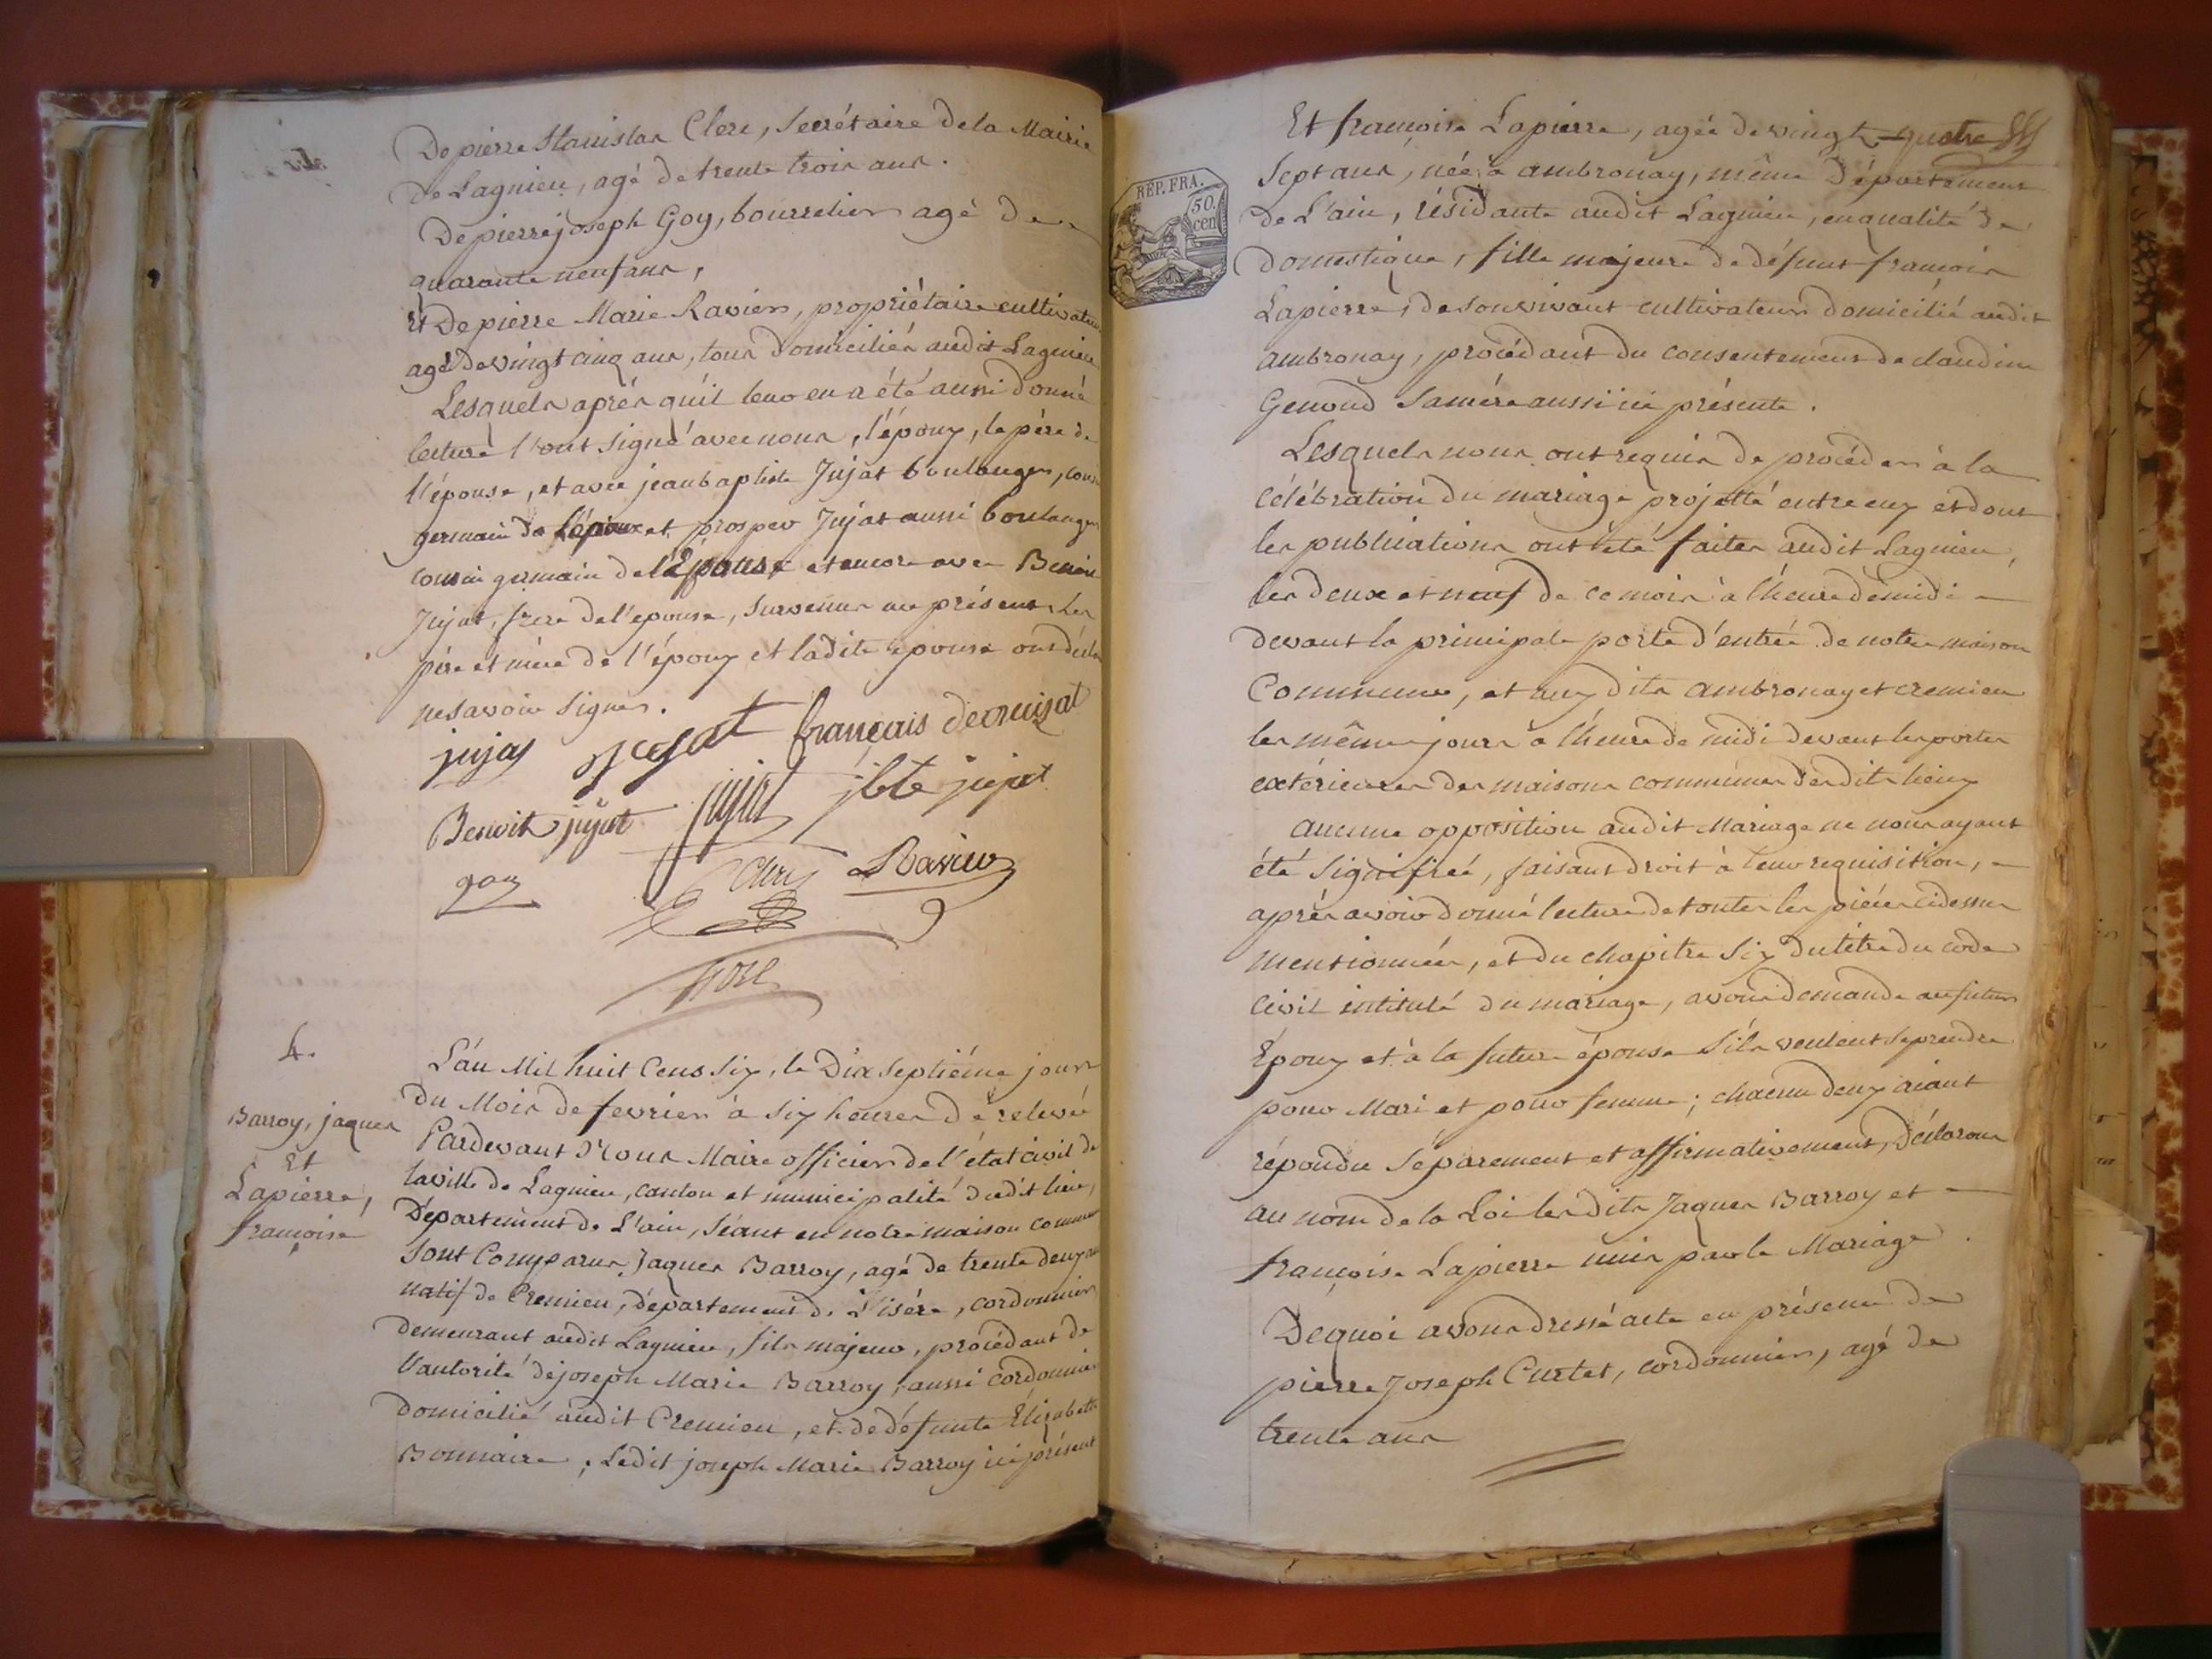 De pierre Stanislas Clerc, Secrétaire de la Mairie
de Lagnieu, agé de trente trois ans.
De pierre joseph Goy, bourrelier agé de
quarante neuf ans,
Et De pierre Marie Ravier, propriétaire cultivateur
agé de vingt cinq ans, tous domiciliés audit Lagnieu
Lesquels après qu'il leur en a été aussi donné
lecture l'ont signé avec nous, l'époux, le père de
l'épouse, et avec jean baptiste Jujat boulanger, cousin
germain de l'époux et prosper Jujat aussi boulanger
cousin germain de l'Épouse et encore avec Benoit
Jujat, frere de l'epouse, survenus au présent. Les
père et mère de l'époux et ladite épouse ont déclaré
ne savoir signer.
jujat jujat français decruizat
Benoit jujat jujat jbte jujat
goy Clerc Ravier
4.
Barroy, jaques
Et
Lapierre,
françoise
L'an Mil huit Cens Six, le Dix Septiéme jour
du Mois de fevrier à Six heures de relevée
Pardevant Nous Maire officier de l'état civil de
la ville de Lagnieu, canton et municipalité dudit lieu,
Département de L'ain, Séant en notre maison commune
Sont Comparus Jaques Barroy, agé de trente deux ans
natif de Cremieu, département de L'isére, cordonnier
demeurant audit Lagnieu, fils majeur, procédant de
l'autorité de joseph Marie Barroy, aussi cordonnier
domicilié audit Cremieu, et de défunte Elizabeth
Bonnaire, Ledit joseph Marie Barroy ici présent
REP. FRA.
50.
cen
Et françoise Lapierre, agée de vingt quatre
Sept ans, née à ambronay, même Département
de L'ain, résidante audit Lagnieu, en qualité de
domestique, fille majeure de défunt françois
Lapierre, de son vivant cultivateur domicilié audit
ambronay, procédant du consentement de claudine
Genoud Sa mére aussi ici présente.
Lesquels nous ont requis de procéder à la
célébration du mariage projetté entre eux et dont
les publications ont été faites audit Lagnieu,
les deux et neuf de ce mois à l'heure de midi
devant la principale porte d'entrée de notre maison
Commune, et aux dits ambronay et cremieu
les mêmes jours à l'heure de midi devant les portes
extérieures des maisons communes desdits lieux
aucune opposition audit Mariage ne nous ayant
été Signifiée, faisant droit à leur requisition,
après avoir donné lecture de toutes les pièces cidessus
mentionnées, et du chapitre Six du titre du code
civil intitulé du mariage, avons demandé au futur
Époux et à la future épouse S'ils veulent se prendre
pour Mari et pour femme; chacun deux aiant
répondu Séparement et affirmativement, déclarons
au nom de la Loi lesdits Jaques Barroy et
françoise Lapierre unis par le Mariage.
Dequoi avons dressé acte en présence de
pierre Joseph Curtet, cordonnier, agé de
trente ans